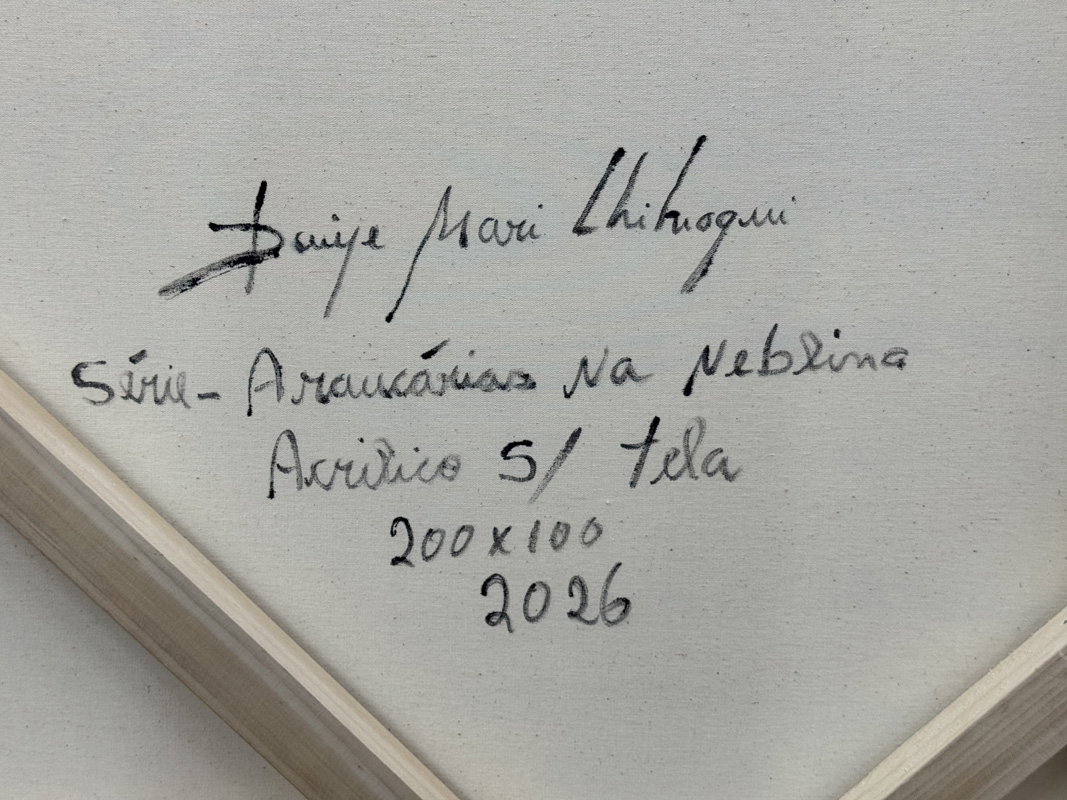 Mari
Série - Araucárias Na Neblina
Acrílico S/ tela
200 x 100
2026